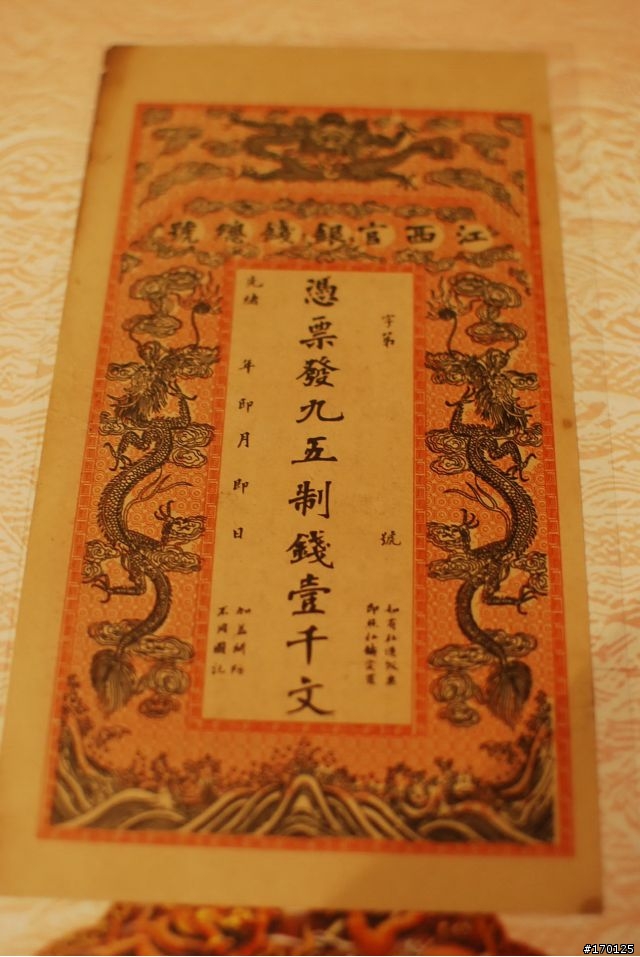 江西官銀錢總號
字第
號
憑票發九五制錢壹千文
光緒
年
即
月
即
日
#170125